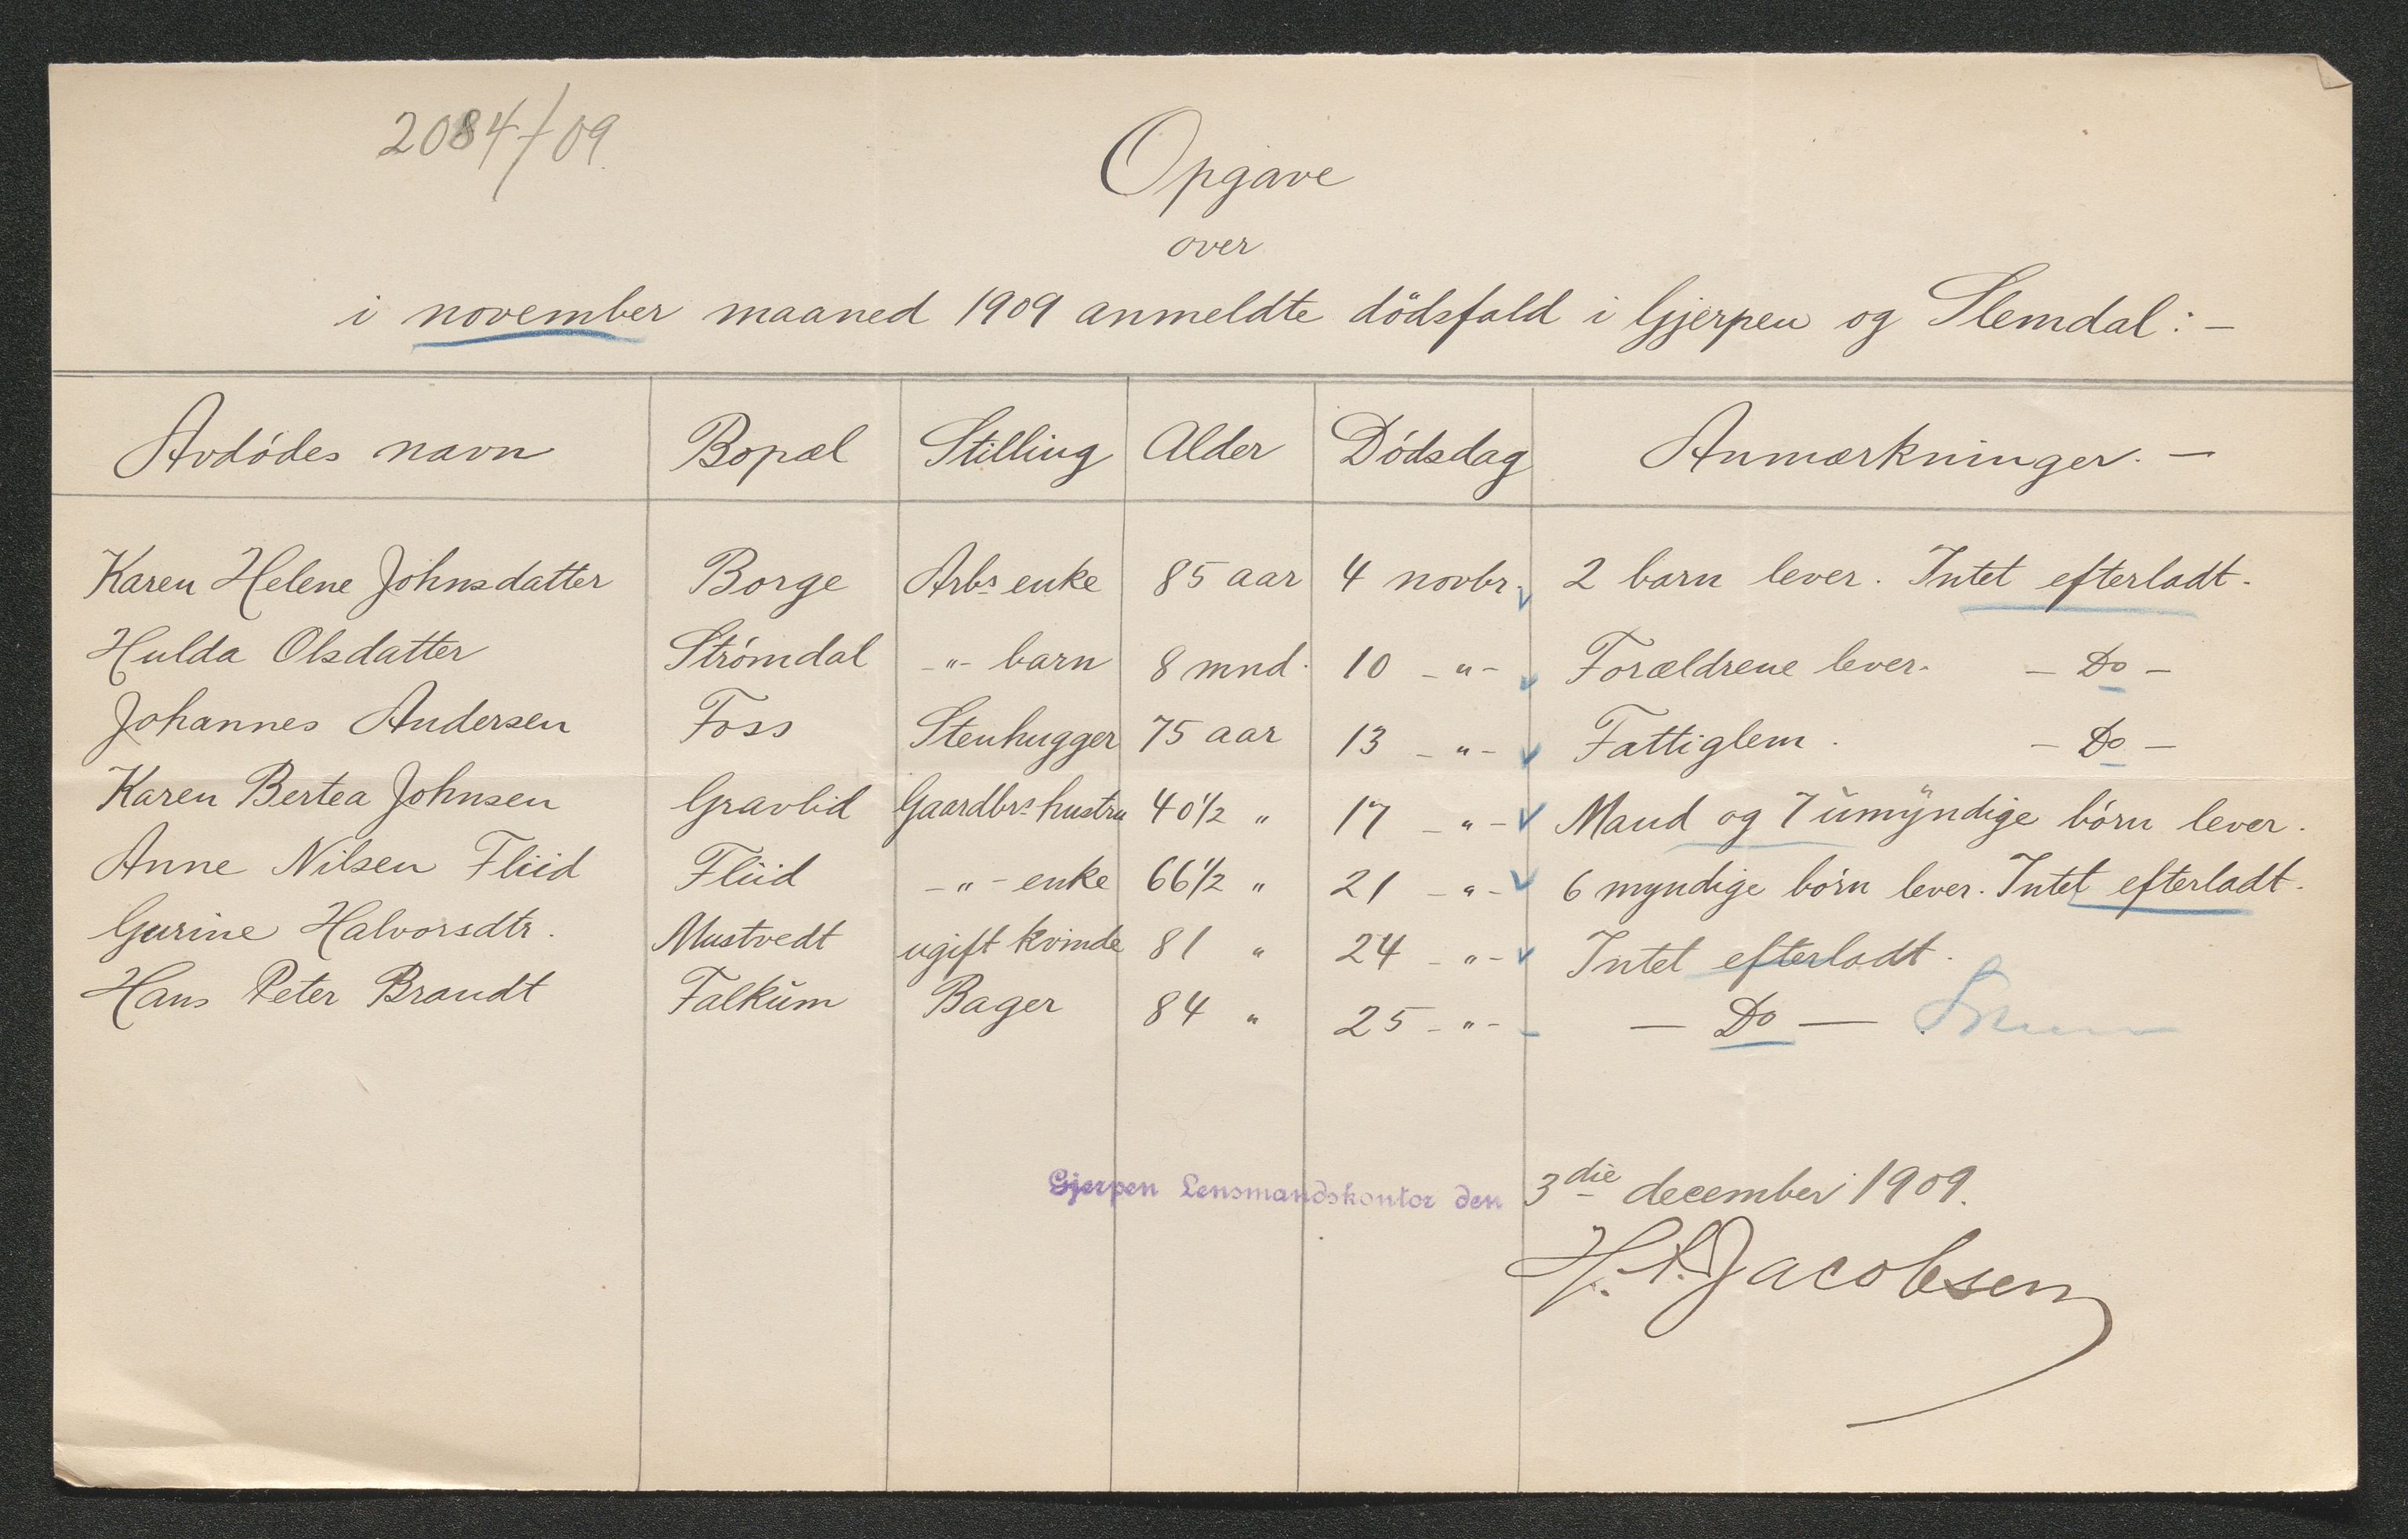 2084/09
Opgave
over
i november maaned 1909 anmeldte dödsfald i Gjerpen og Slemdal: –
Avdødes navn Bopæl Stilling Alder Dødsdag Anmærkninger. –
Karen Helene Johnsdatter Borge Arbs enke 85 aar 4 novbr. 2 barn lever. Intet efterladt.
Hulda Olsdatter Strömdal -"- barn 8 mnd. 10 -"- Forældrene lever. – Do –
Johannes Andersen Foss Stenhugger 75 aar 13 -"- Fattiglem. – Do –
Karen Bertea Johnsen Gravlid Gaardbrs hustru 40½ " 17 -"- Mand og 7 umyndige börn lever.
Anne Nilsen Fliid Fliid -"- enke 66½ " 21 -"- 6 myndige börn lever. Intet efterladt.
Gurine Halvorsdtr. Mustvedt ugift kvinde 81 " 24 -"- Intet efterladt.
Hans Peter Brandt Falkum Bager 84 " 25 -"- – Do –
Gjerpen Lensmandskontor den 3die december 1909.
Jacobsen